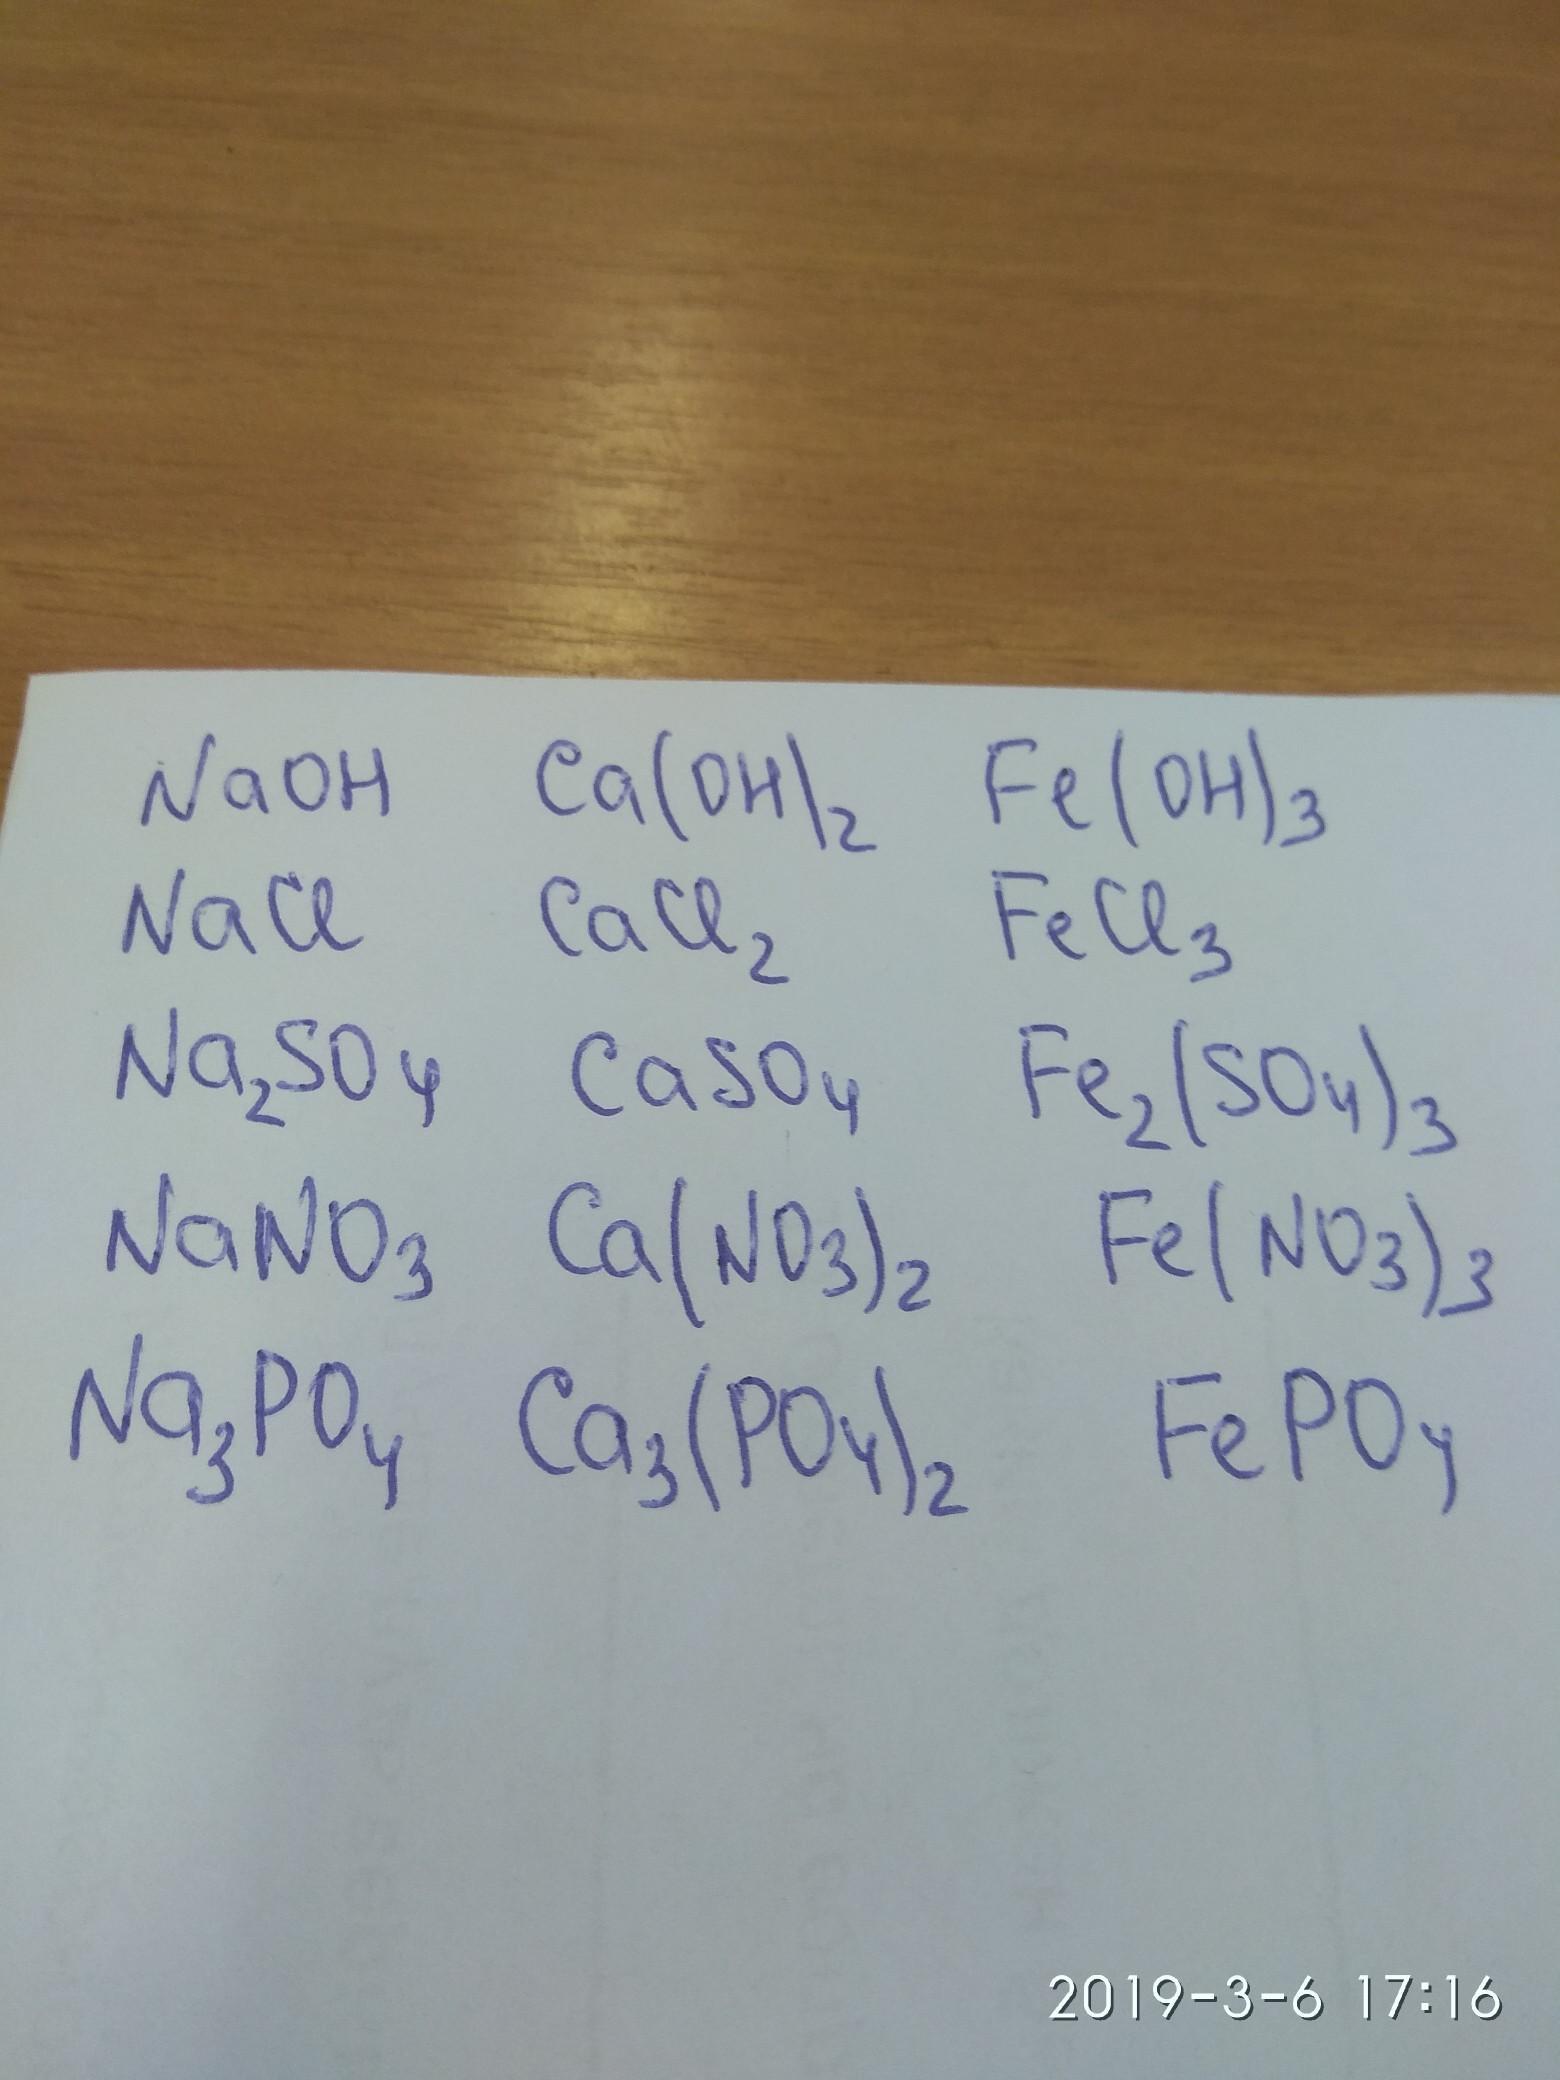 NaOH Ca(OH)2 Fe(OH)3
NaCl CaCl2 FeCl3
Na2SO4 CaSO4 Fe2(SO4)3
NaNO3 Ca(NO3)2 Fe(NO3)3
Na3PO4 Ca3(PO4)2 FePO4
2019-3-6 17:16